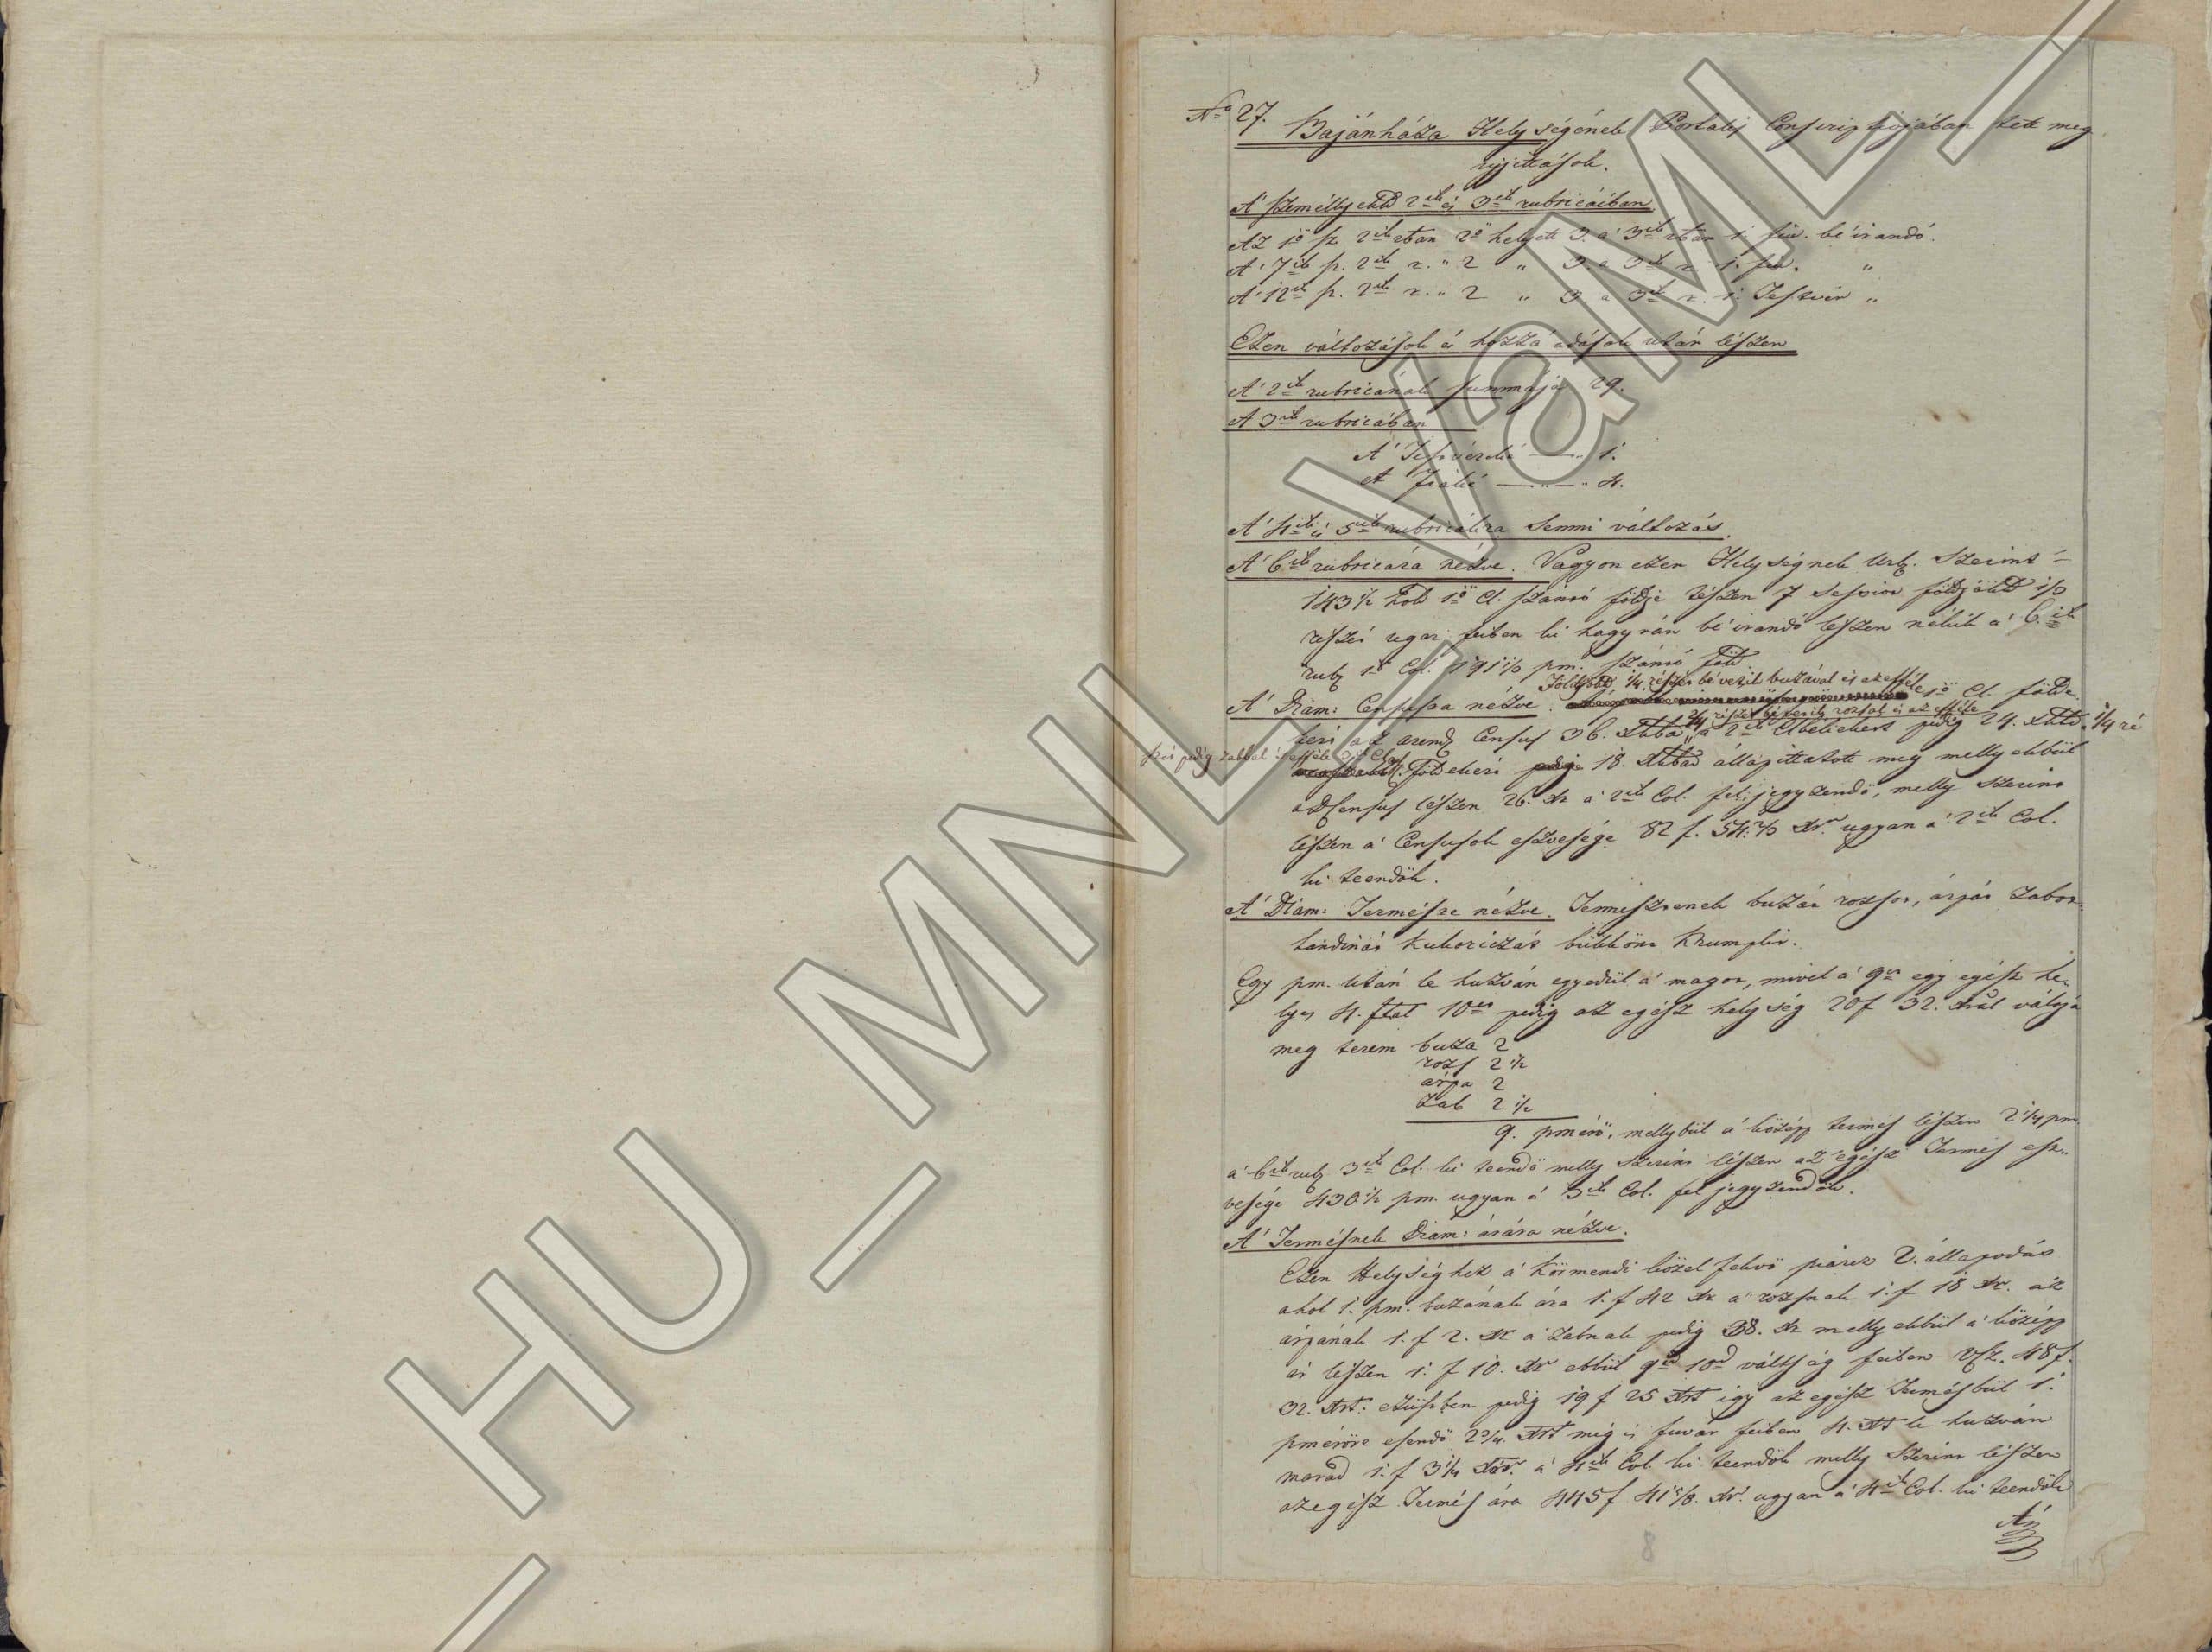 No 27. Bajánháza Helységének Portalis Conscriptiojában tett meg
ujjittások.
A' személlyekkel 2ik és 3ik rubricáiban
Az 1ő sz. 2ik rban 2ő helyett 3. a' 3ik rban 1. fiu. bé irandó.
A' 7ik sz. 2ik r. " 2 " 3. a 3ik r. 1. fiu. "
A' 12ik sz. 2ik r. " 2 " 3. a 3ik r. 1. Testvér "
Ezen változások és hozzá adások után lészen
A' 2ik rubricának summája 29.
A 3ik rubricában
A' Testvéreké — 1.
A Fiaké — " — " 4.
A' 4ik és 5ik rubricákra Semmi változás.
A' 6ik rubricára nézve. Vagyon ezen Helységnek Urb. Szerint
143 1/2 hold 1ő Cl. szántó földje lészen 7 Sessio földjökk 1/3
részét ugar feiben ki hagyván bé irandó lészen nékik a' 6ik
rub 1ő Col. 191 1/3 pm. szántó föld
Földjökk 1/4 részit bé vetik buzával és az efféle
A' Diam: Censusra nézve. 1ő Cl. földe
2/4 részét bé vetik rozsal és az efféle
kert az arend Census 36. a' 2ik Clbeliekert pedig 24. 1/4 ré
szét pedig zabbal s efféle 3ik Clas
Földekert 18. állapittatott meg mellyekbül
a Census lészen 26. xr a' 2ik Col. fel jegyzendő, melly Szerint
lészen a' Censusok eszvesége 82 f. 54 2/3 xr. ugyan a' 2ik Col.
ki teendők.
A' Diam: Termésre nézve. Termesztenek buzát rozsot, árpát Zabot
handinát Kukoriczát bükkönt Krumplit.
Egy pm. után le huzván egyedül a' magot, mivel a' 9et egy egész he„
lyes 4. ftal 10et pedig az egész helység 20f 32. xral váltja
meg terem buza 2
rozs 2 1/2
árpa 2
Zab 2 1/2
9. pmérő, mellybül a' középp termés lészen 2 1/4 pm
a' 6ik rub 3ik Col. ki teendő melly Szerint lészen az egész Termés esz„
vesége 430 1/2 pm. ugyan a' 3ik Col. fel jegyzendők.
A' Termésnek Diam: árára nézve.
Ezen Helységhez a' Körmendi közel fekvő piarcz 2. állapodás
ahol 1. pm. buzának ára 1. f 42 xr a' rozsnak 1. f 18 xr. az
árpának 1. f 2. xr a' zabnak pedig 38. xr mellyekbül a' középp
ár lészen 1. f 10. xr ebbül 9ed 10d váltság feiben Vsz. 48f.
32. xrt. ezüstben pedig 19 f 25 xrt így az egész Termésbül 1.
pmérőre esendő 2 3/4. xrt még is fuvar feiben 4. xrt le huzván
marad 1. f 3 1/4 xr. a' 4ik Col. ki teendők melly Szerint lészen
az egész Termés ára 445 f 41 5/8. xr. ugyan a' 4ik Col. ki teendők
8
HU_MNL_VaML_